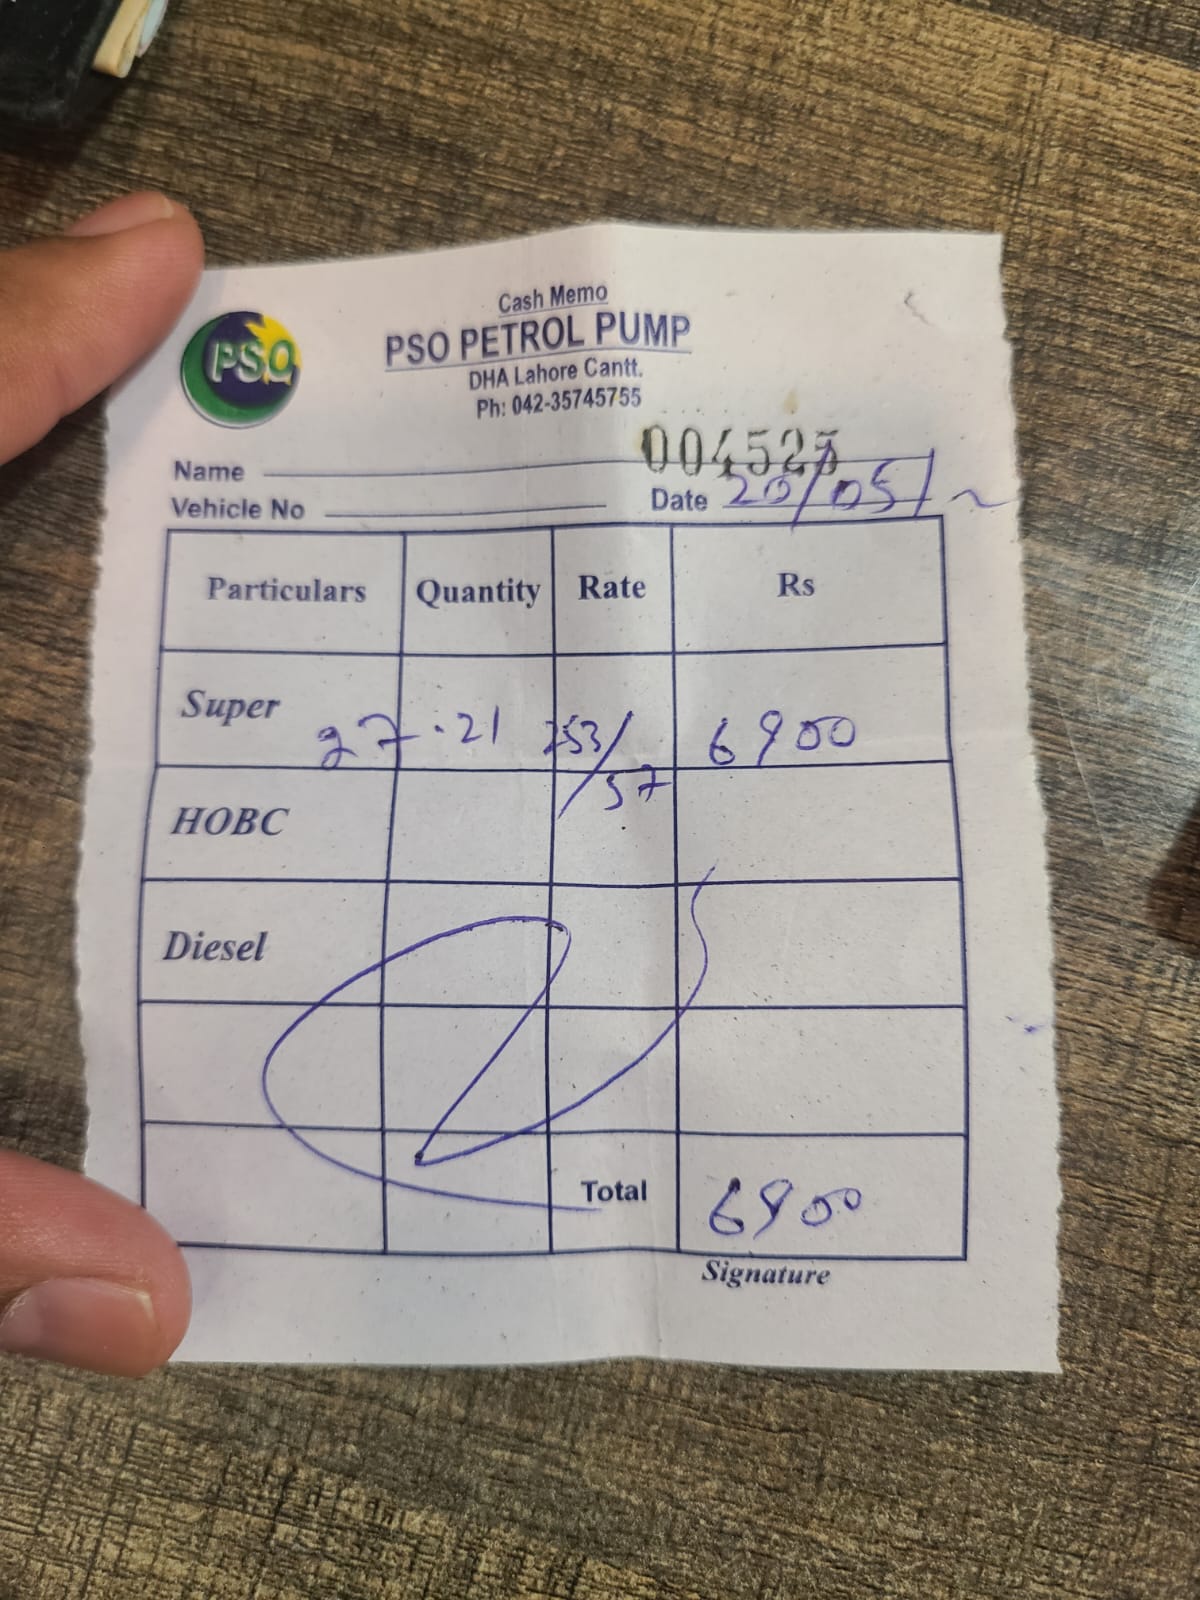 Cash Memo
PSO
PSO PETROL PUMP
DHA Lahore Cantt.
Ph: 042-35745755
004525
Name
Vehicle No Date 20/05/
Particulars Quantity Rate Rs
Super 27.21 253/57 6900
HOBC
Diesel
Total 6900
Signature